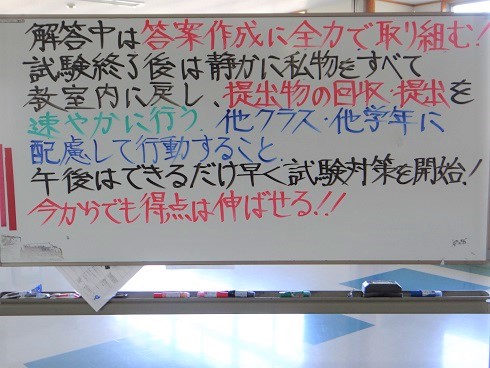 解答中は答案作成に全力で取り組む!
試験終了後は静かに私物をすべて
教室内に戻し、提出物の回収・提出を
速やかに行う。他クラス・他学年に
配慮して行動すること。
午後はできるだけ早く試験対策を開始!
今からでも得点は伸ばせる!!